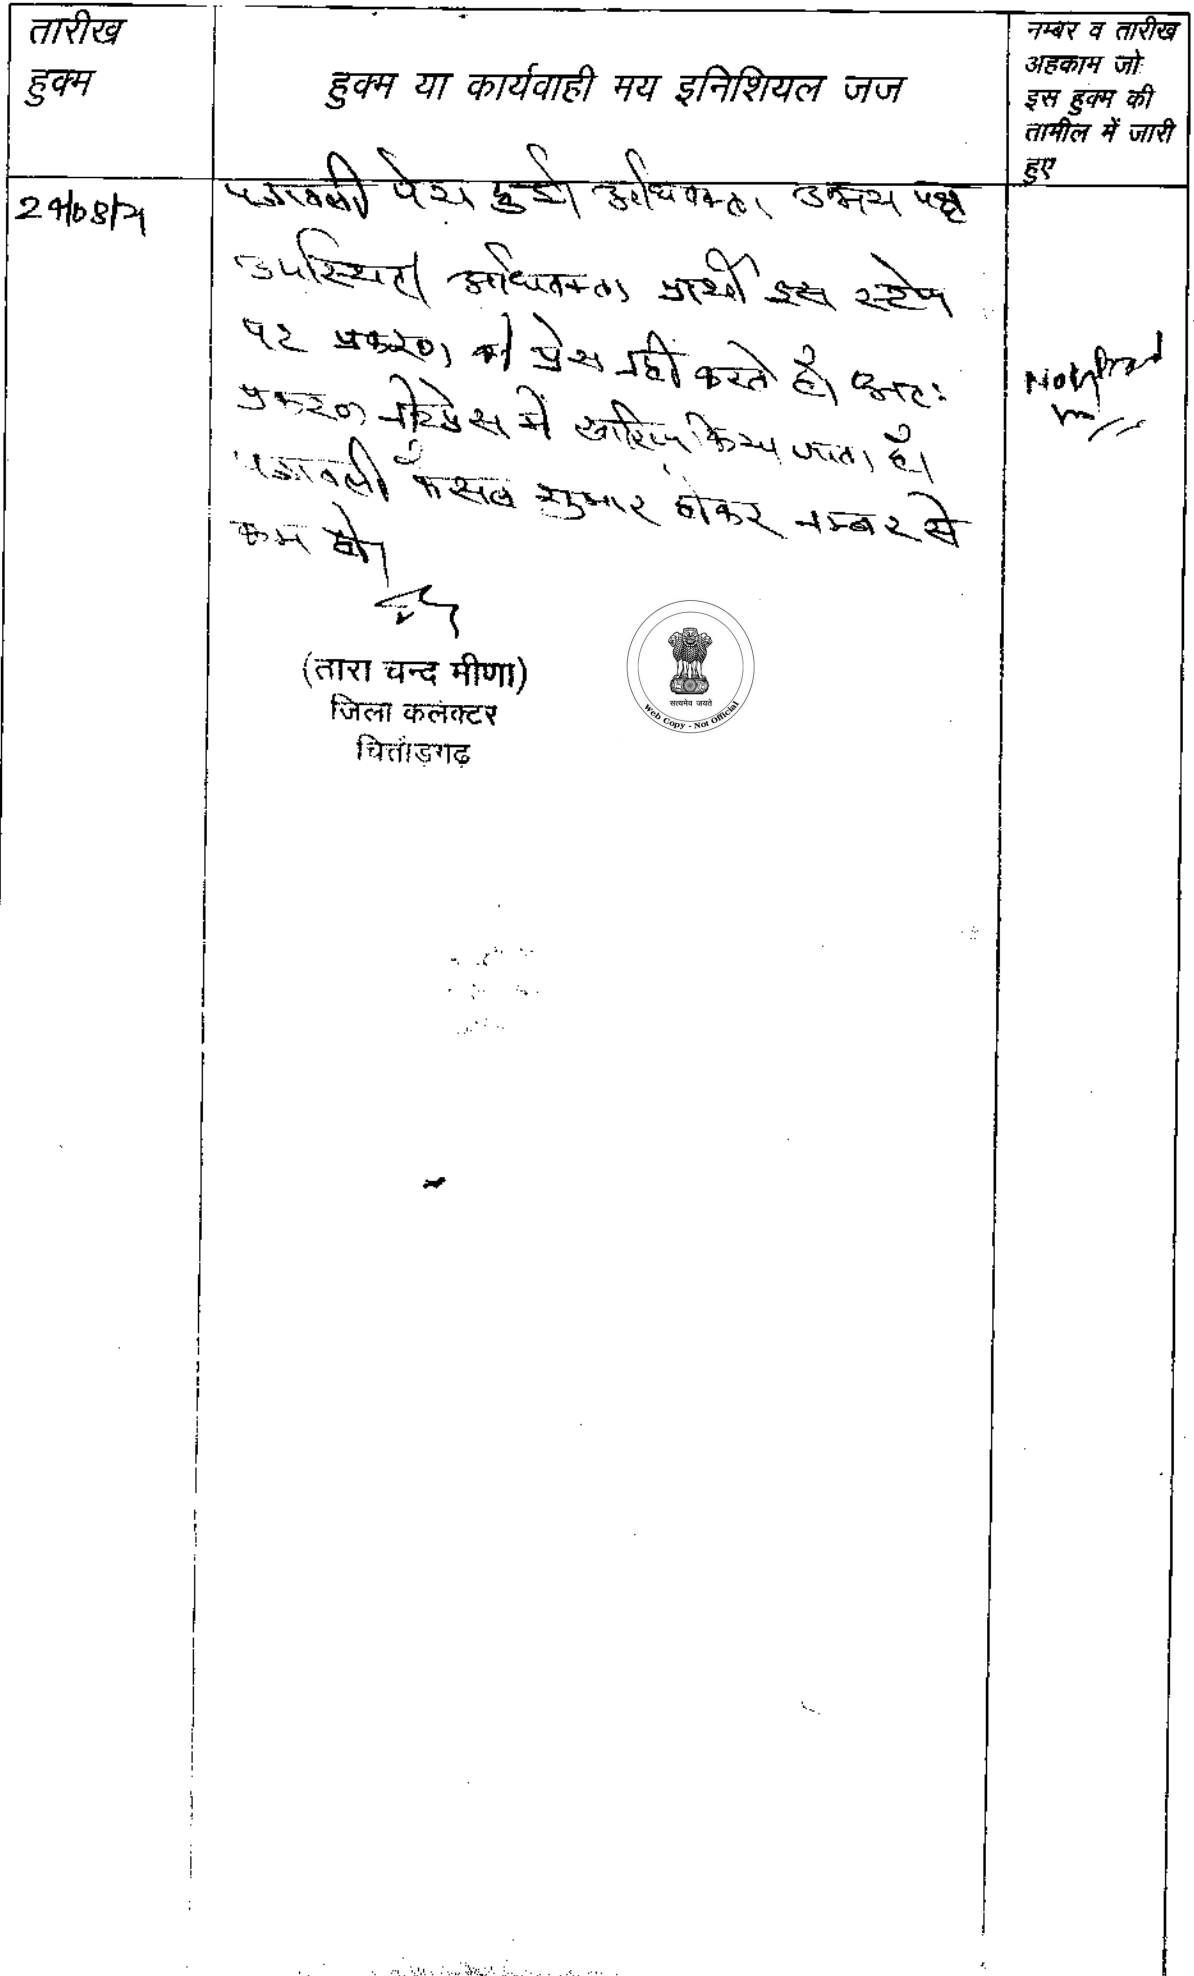 तारीख
हुक्म
हुक्म या कार्यवाही मय इनिशियल जज
नम्बर व तारीख
अहकाम जो
इस हुक्म की
तामील में जारी
हुए
पत्रावली पेश हुई। अधिवक्ता उभय पक्ष
उपस्थित। अधिवक्ता प्रार्थी इस स्टेज
पर प्रकरण को प्रेस नही करते है। अतः
प्रकरण नोटप्रेस में खारिज किया जाता है।
पत्रावली फैसल शुमार होकर नम्बर से
कम हो।
(तारा चन्द मीणा)
जिला कलक्टर
चित्तौड़गढ़
सत्यमेव जयते
Web Copy - Not Official